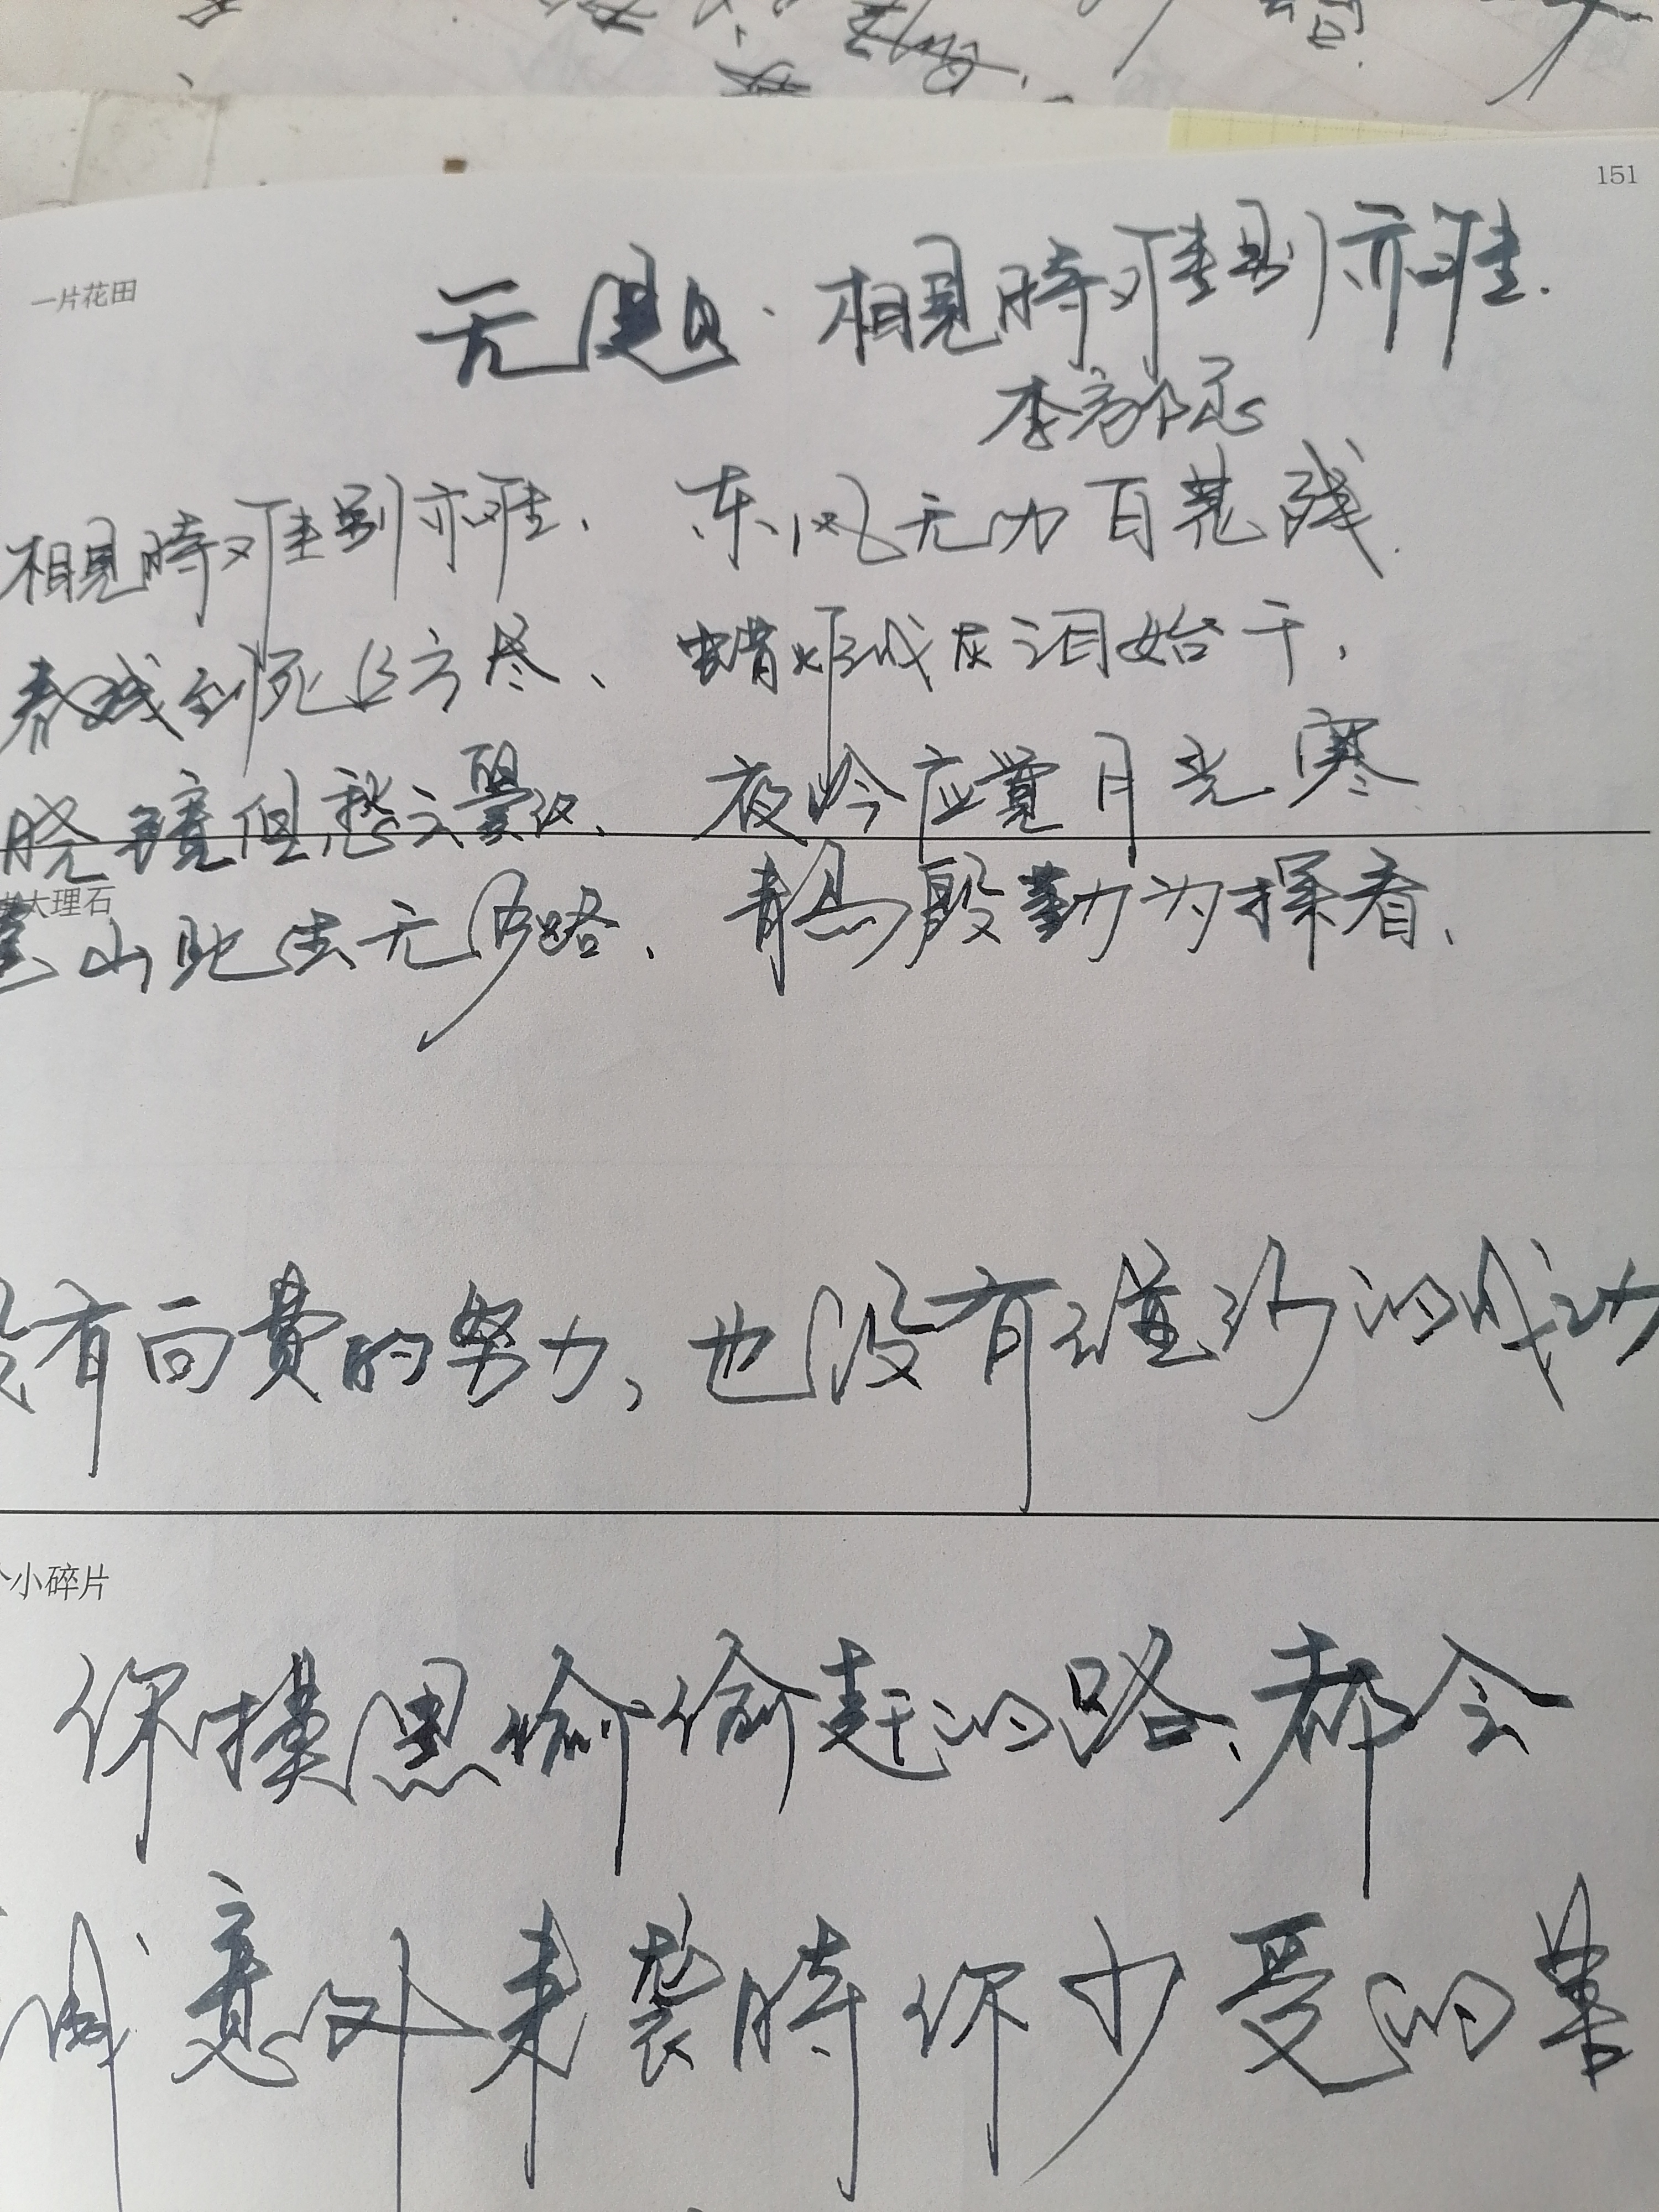 151
一片花田
无题·相見時难别亦难.
李商隐
相見時难别亦难、东风无力百花残.
春蚕到死丝方尽、蜡炬成灰泪始干，
晓镜但愁云鬓改、夜吟应觉月光寒
大理石
山此去无多路、青鸟殷勤为探看、
没有白费的努力，也没有碰巧的成功
小碎片
你摸黑偷偷赶的路、都会
意外来袭時你少受的苦